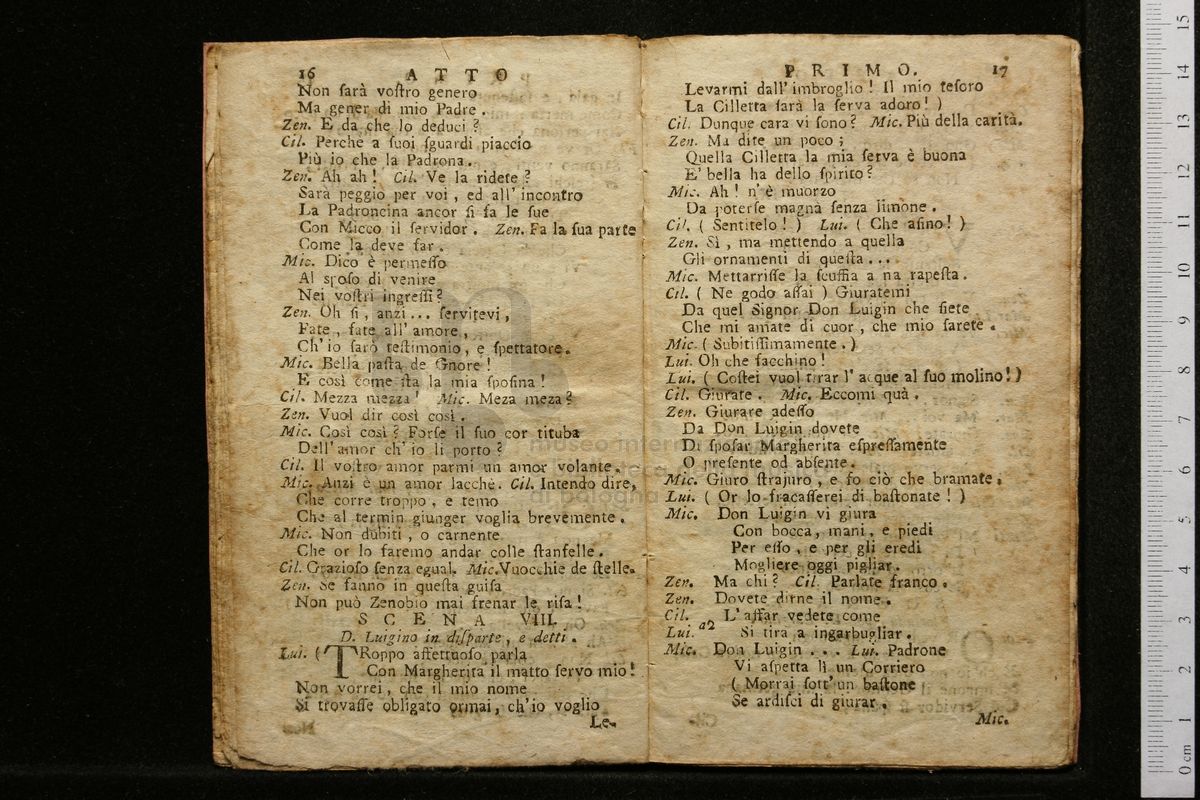 16 ATTO
Non ſarà voſtro genero
Ma gener di mio Padre.
Zen. E da che lo deduci?
Cil. Perche a ſuoi ſguardi piaccio
Più io che la Padrona.
Zen. Ah ah! Cil. Ve la ridete?
Sarà peggio per voi, ed all' incontro
La Padroncina ancor ſi fa le ſue
Con Micco il ſervidor. Zen. Fa la ſua parte
Come la deve far.
Mic. Dico è permeſſo
Al ſpoſo di venire
Nei voſtri ingreſſi?
Zen. Oh ſi, anzi... ſervitevi,
Fate, fate all' amore,
Ch' io ſarò teſtimonio, e ſpettatore.
Mic. Bella paſta de Gnore!
E così come ſta la mia ſpoſina!
Cil. Mezza mezza! Mic. Meza meza?
Zen. Vuol dir così così.
Mic. Così così? Forſe il ſuo cor tituba
Dell' amor ch' io li porto?
Cil. Il voſtro amor parmi un amor volante.
Mic. Anzi è un amor lacchè. Cil. Intendo dire,
Che corre troppo, e temo
Che al termin giunger voglia brevemente.
Mic. Non dubiti, o carnente
Che or lo faremo andar colle ſtanfelle.
Cil. Grazioſo ſenza egual. Mic. Vuocchie de ſtelle.
Zen. Se fanno in queſta guiſa
Non può Zenobio mai frenar le riſa!
SCENA VIII.
D. Luigino in diſparte, e detti.
Lui. (TRoppo affettuoſo parla
Con Margherita il matto ſervo mio!
Non vorrei, che il mio nome
Si trovaſſe obligato ormai, ch' io voglio
Le-
PRIMO. 17
Levarmi dall' imbroglio! Il mio teſoro
La Cilletta ſarà la ſerva adoro!)
Cil. Dunque cara vi ſono? Mic. Più della carità.
Zen. Ma dite un poco;
Quella Cilletta la mia ſerva è buona
E' bella ha dello ſpirito?
Mic. Ah! n' è muorzo
Da poterſe magnà ſenza limone.
Cil. (Sentitelo!) Lui. (Che aſino!)
Zen. Sì, ma mettendo a quella
Gli ornamenti di queſta...
Mic. Mettarriſſe la ſcuffia a na rapeſta.
Cil. (Ne godo aſſai) Giuratemi
Da quel Signor Don Luigin che ſiete
Che mi amate di cuor, che mio ſarete.
Mic. (Subitiſſimamente.)
Lui. Oh che facchino!
Lui. (Coſtei vuol tirar l' acque al ſuo molino!)
Cil. Giurate. Mic. Eccomi quà.
Zen. Giurare adeſſo
Da Don Luigin dovete
Di ſpoſar Margherita eſpreſſamente
O preſente od abſente.
Mic. Giuro ſtrajuro, e fo ciò che bramate.
Lui. (Or lo fracaſſerei di baſtonate!)
Mic. Don Luigin vi giura
Con bocca, mani, e piedi
Per eſſo, e per gli eredi
Mogliere oggi pigliar.
Zen. Ma chi? Cil. Parlate franco.
Zen. Dovete dirne il nome.
Cil. L' affar vedete come
Lui. a2 Si tira a ingarbugliar.
Mic. Don Luigin... Lui. Padrone
Vi aſpetta lì un Corriero
(Morrai ſott' un baſtone
Se ardiſci di giurar.
Mic.